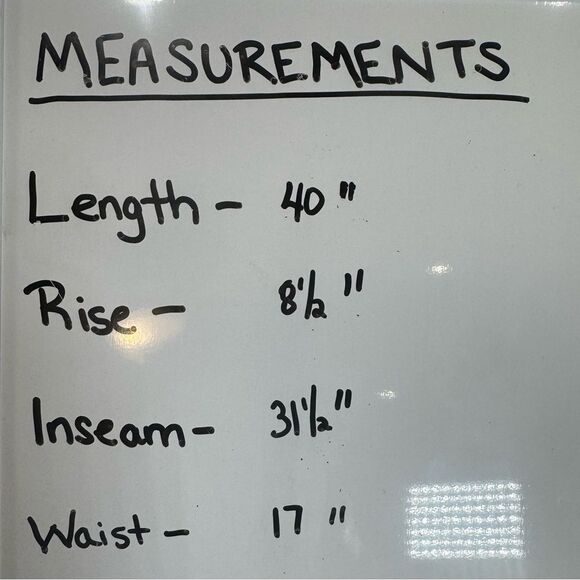 MEASUREMENTS
Length - 40"
Rise - 8 1/2"
Inseam - 31 1/2"
Waist - 17"